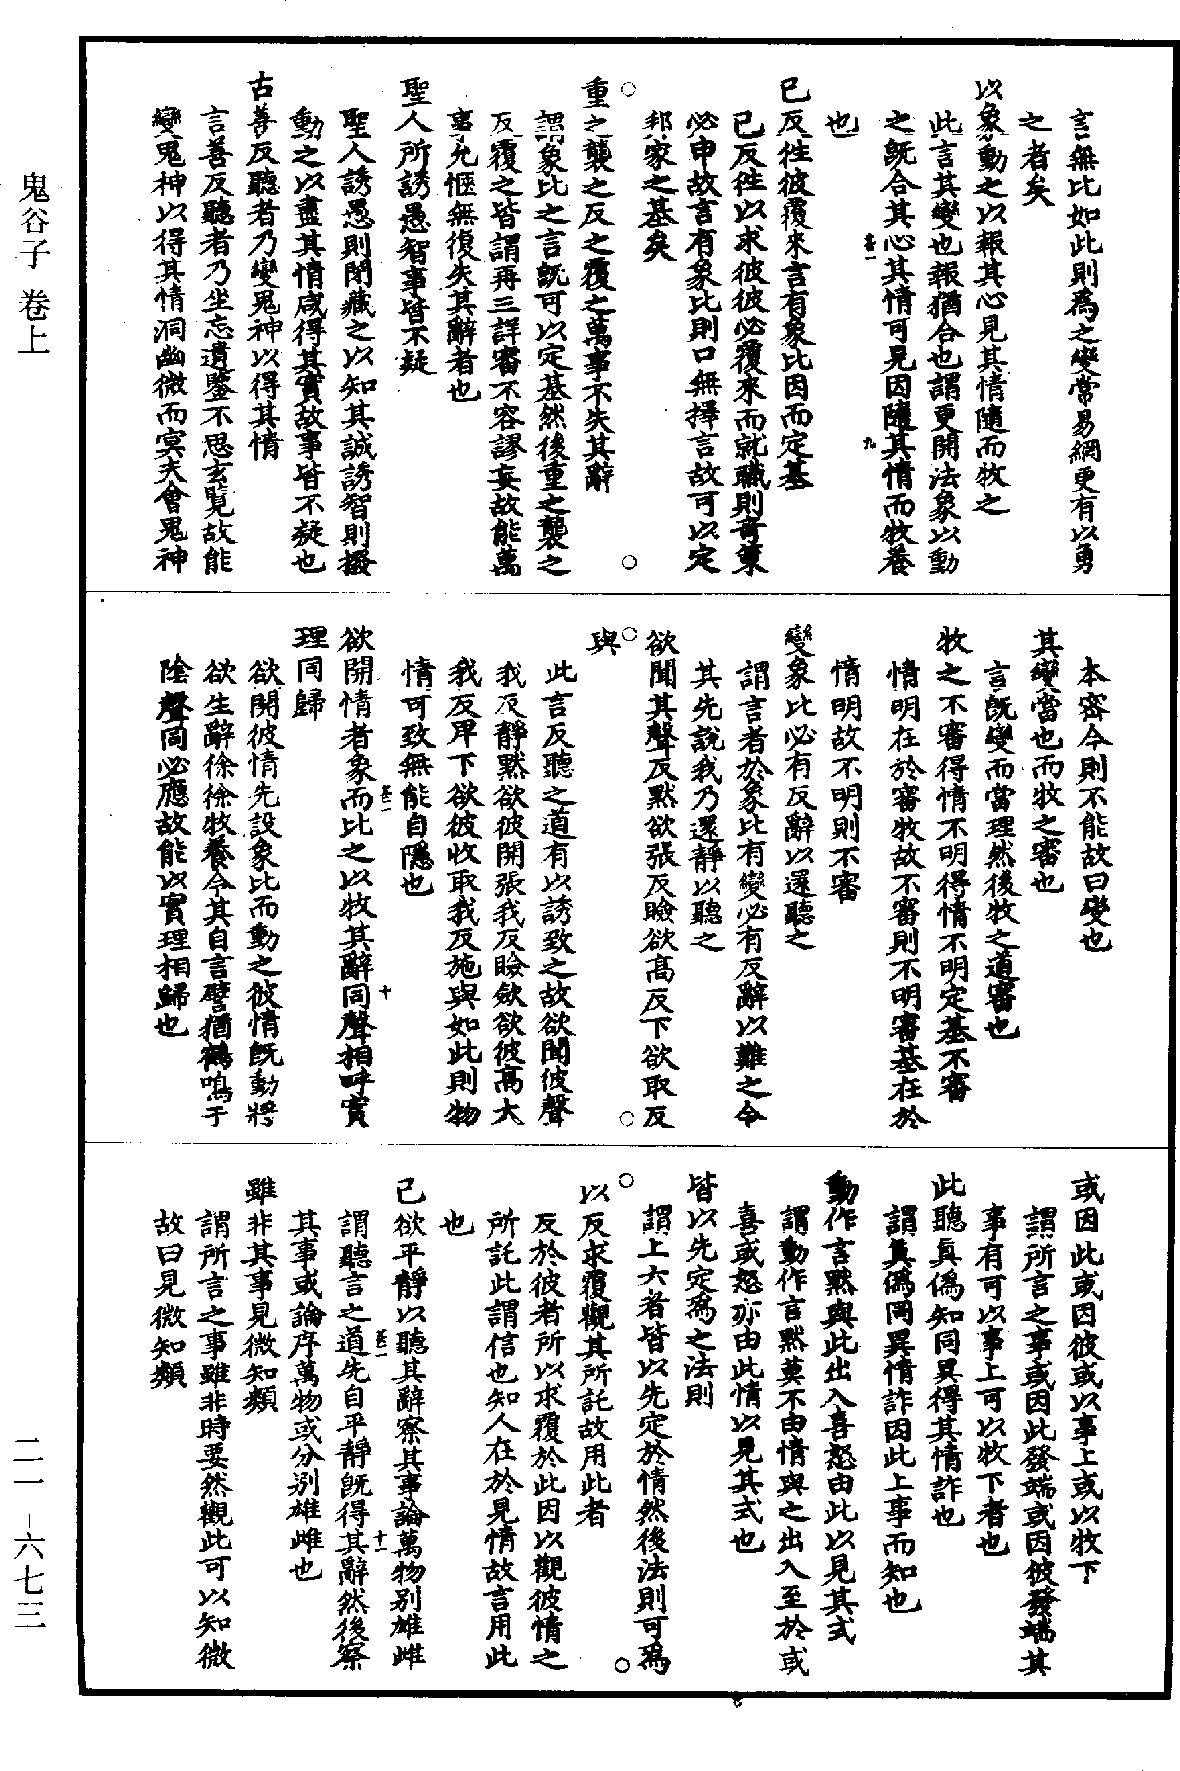 鬼谷子 卷上
言無比如此則爲之變常易網更有以勇
之者矣
以象動之以報其心見其情隨而牧之
此言其變也報猶合也謂更開法象以動
之旣合其心其情可見因隨其情而牧養
也
已反往彼覆來言有象比因而定基
已反往以求彼彼必覆來而就職則奇策
必申故言有象比則口無擇言故可以定
邦家之基矣
重之襲之反之覆之萬事不失其辭
謂象比之言旣可以定基然後重之襲之
反覆之皆謂再三詳審不容謬妄故能萬
事允愜無復失其辭者也
聖人所誘愚智事皆不疑
聖人誘愚則閉藏之以知其誠誘智則撥
動之以盡其情咸得其實故事皆不疑也
古善反聽者乃變鬼神以得其情
言善反聽者乃坐忘遺鑒不思玄覽故能
變鬼神以得其情洞幽微而冥夫會鬼神
本密今則不能故曰變也
其變當也而牧之審也
言旣變而當理然後牧之道審也
牧之不審得情不明得情不明定基不審
情明在於審牧故不審則不明審基在於
情明故不明則不審
變象比必有反辭以還聽之
謂言者於象比有變必有反辭以難之令
其先說我乃還靜以聽之
欲聞其聲反默欲張反瞼欲高反下欲取反
與
此言反聽之道有以誘致之故欲聞彼聲
我反靜默欲彼開張我反瞼斂欲彼高大
我反卑下欲彼收取我反施與如此則物
情可致無能自隱也
欲開情者象而比之以牧其辭同聲相呼實
理同歸
欲開彼情先設象比而動之彼情旣動將
欲生辭徐徐牧養令其自言譬猶鶴鳴于
陰聲同必應故能以實理相歸也
或因此或因彼或以事上或以牧下
謂所言之事或因此發端或因彼發端其
事有可以事上可以牧下者也
此聽眞僞知同異得其情詐也
謂眞僞同異情詐因此上事而知也
動作言默與此出入喜怒由此以見其式
謂動作言默莫不由情與之出入至於或
喜或怒亦由此情以見其式也
皆以先定爲之法則
謂上六者皆以先定於情然後法則可爲
以反求覆觀其所託故用此者
反於彼者所以求覆於此因以觀彼情之
所託此謂信也知人在於見情故言用此
也
已欲平靜以聽其辭察其事論萬物別雄雌
謂聽言之道先自平靜旣得其辭然後察
其事或論序萬物或分別雄雌也
雖非其事見微知類
謂所言之事雖非時要然觀此可以知微
故曰見微知類
二一－六七三